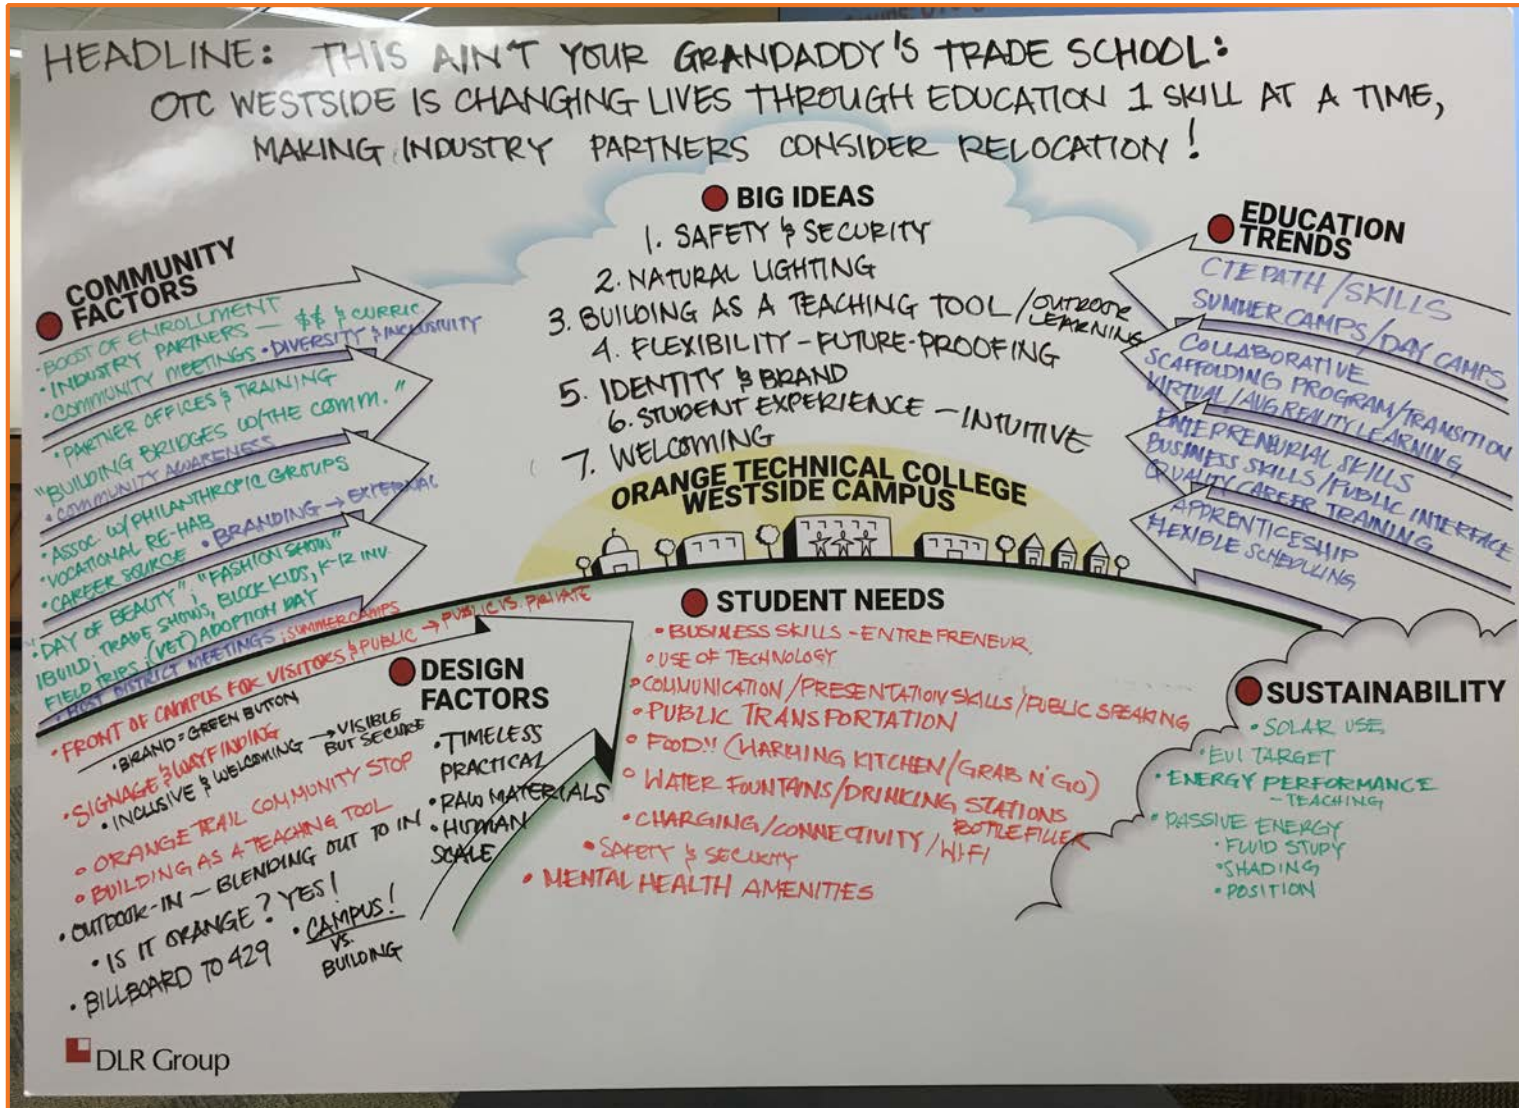 HEADLINE: THIS AIN'T YOUR GRANDADDY'S TRADE SCHOOL:
OTC WESTSIDE IS CHANGING LIVES THROUGH EDUCATION 1 SKILL AT A TIME,
MAKING INDUSTRY PARTNERS CONSIDER RELOCATION!
BIG IDEAS
1. SAFETY & SECURITY
2. NATURAL LIGHTING
3. BUILDING AS A TEACHING TOOL / OUTDOOR
LEARNING
4. FLEXIBILITY - FUTURE-PROOFING
5. IDENTITY & BRAND
6. STUDENT EXPERIENCE - INTUITIVE
7. WELCOMING
COMMUNITY
FACTORS
• BOOST OF ENROLLMENT
• INDUSTRY PARTNERS - $$ & CURRIC
• COMMUNITY MEETINGS • DIVERSITY & INCLUSIVITY
• PARTNER OFFICES & TRAINING
"BUILDING BRIDGES W/THE COMM."
• COMMUNITY AWARENESS
• ASSOC W/ PHILANTHROPIC GROUPS
• VOCATIONAL RE-HAB
• CAREER SOURCE • BRANDING → EXTERNAL
• "DAY OF BEAUTY"; "FASHION SHOW"
IBUILD; TRADE SHOWS, BLOCK KIDS, K-12 INV.
FIELD TRIPS; (VET) ADOPTION DAY
• HOST DISTRICT MEETINGS; SUMMER CAMPS
EDUCATION
TRENDS
CTE PATH / SKILLS
SUMMER CAMPS / DAY CAMPS
COLLABORATIVE
SCAFFOLDING PROGRAM/TRANSITION
VIRTUAL/AUG REALITY LEARNING
ENTEPRENEURIAL SKILLS
BUSINESS SKILLS/PUBLIC INTERFACE
QUALITY CAREER TRAINING
APPRENTICESHIP
FLEXIBLE SCHEDULING
ORANGE TECHNICAL COLLEGE
WESTSIDE CAMPUS
DESIGN
FACTORS
• FRONT OF CAMPUS FOR VISITORS & PUBLIC → PUBLIC VS. PRIVATE
• BRAND = GREEN BUTTON
• SIGNAGE & WAYFINDING
• INCLUSIVE & WELCOMING → VISIBLE
BUT SECURE
• ORANGE TRAIL COMMUNITY STOP
• BUILDING AS A TEACHING TOOL
• OUTDOOR-IN - BLENDING OUT TO IN
• IS IT ORANGE? YES!
• BILLBOARD TO 429
• CAMPUS!
VS.
BUILDING
• TIMELESS
PRACTICAL
• RAW MATERIALS
• HUMAN
SCALE
STUDENT NEEDS
• BUSINESS SKILLS - ENTREPRENEUR
• USE OF TECHNOLOGY
• COMMUNICATION / PRESENTATION SKILLS / PUBLIC SPEAKING
• PUBLIC TRANSPORTATION
• FOOD!! (WARMING KITCHEN/GRAB N' GO)
• WATER FOUNTAINS/DRINKING STATIONS
BOTTLE FILLER
• CHARGING/CONNECTIVITY/WIFI
• SAFETY & SECURITY
• MENTAL HEALTH AMENITIES
SUSTAINABILITY
• SOLAR USE
• EUI TARGET
• ENERGY PERFORMANCE
- TEACHING
• PASSIVE ENERGY
• FLUID STUDY
• SHADING
• POSITION
DLR Group